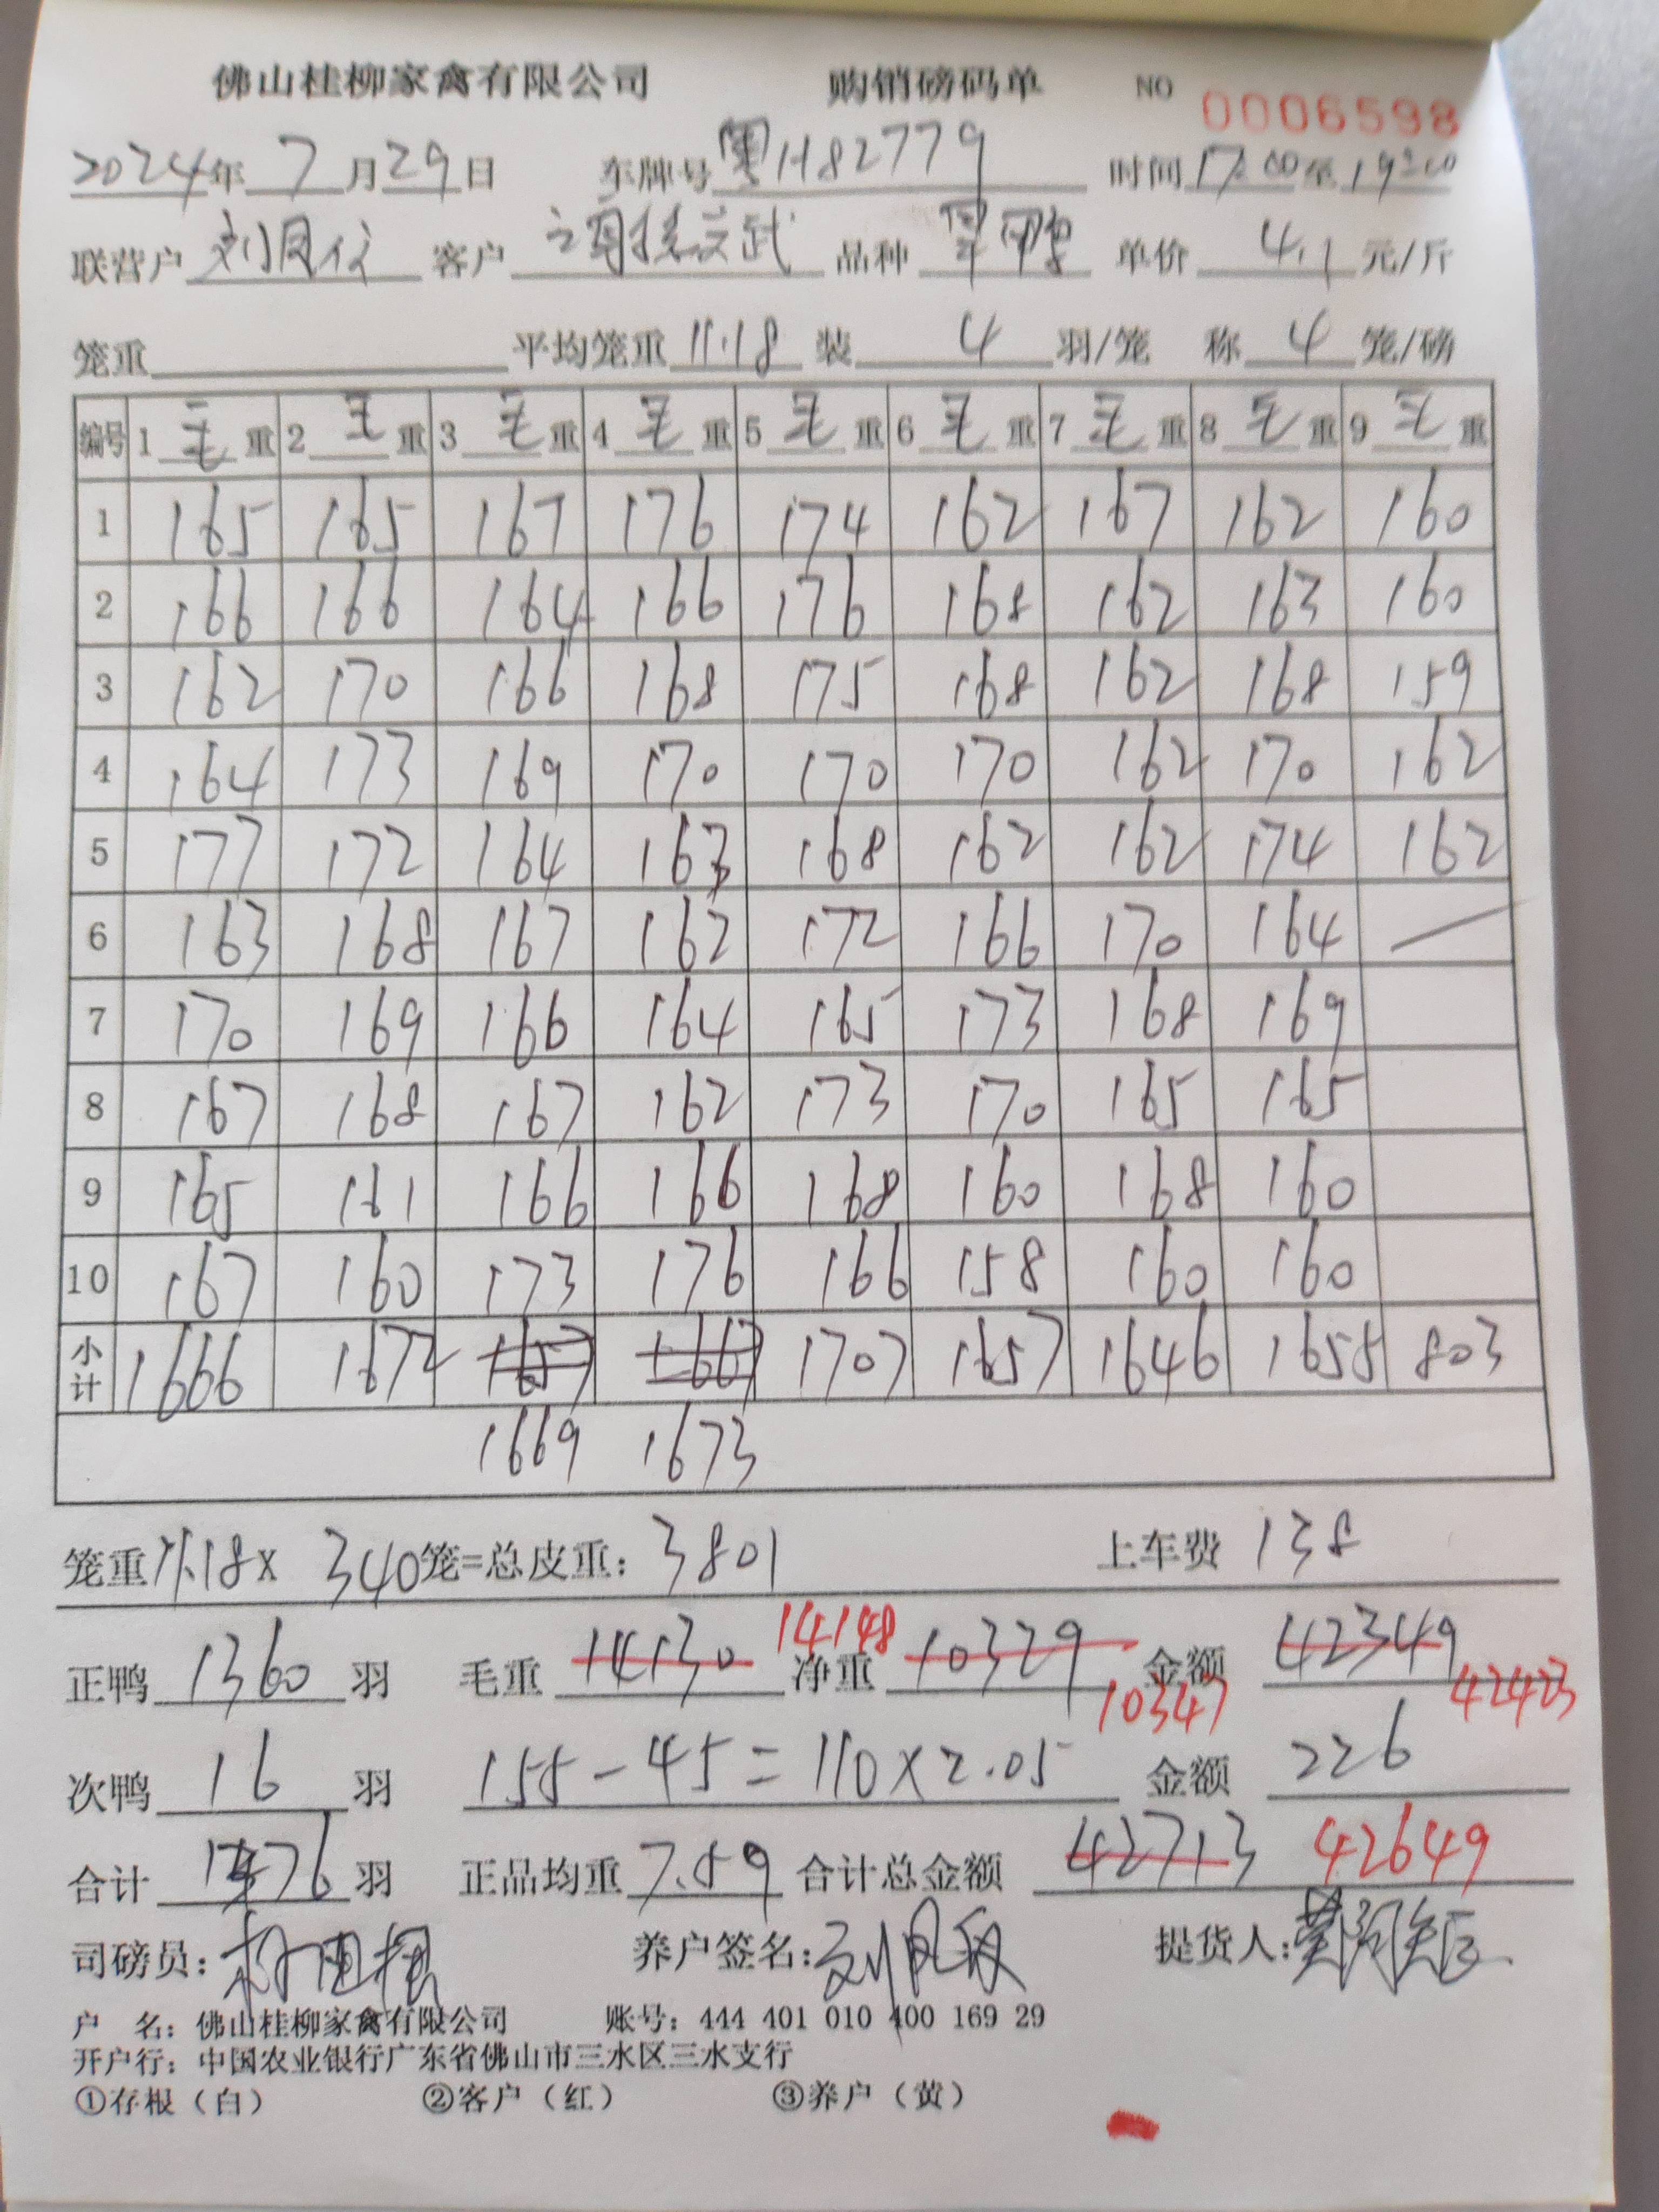 佛山桂柳家禽有限公司 购销磅码单 NO 0006598
2024年 7月29日 车牌号 粤H82779 时间 17:00至19:00
联营户 刘 客户 武 品种 单价 4.1 元/斤
笼重 平均笼重 11.18 装 4 羽/笼 称 4 笼/磅
编号 1 毛重 2 毛重 3 毛重 4 毛重 5 毛重 6 毛重 7 毛重 8 毛重 9 毛重
1 165 165 167 176 174 162 167 162 160
2 166 166 164 166 176 168 162 163 160
3 162 170 166 168 175 168 162 168 159
4 164 173 169 170 170 170 162 170 162
5 177 172 164 163 168 162 162 174 162
6 163 168 167 162 172 166 170 164 —
7 170 169 166 164 165 173 168 169
8 167 168 167 162 173 170 165 165
9 165 161 166 166 168 160 168 160
10 167 160 173 176 166 158 160 160
小计 1666 1672 1657 1667 1707 1657 1646 1655 803
1669 1673
笼重 11.18 x 340笼=总皮重: 3801 上车费 138
正鸭 1360 羽 毛重 14130 14148 净重 10329 10347 金额 42349 42423
次鸭 16 羽 155-45=110×2.05 金额 226
合计 1376 羽 正品均重 7.59 合计总金额 42713 42649
司磅员: 养户签名: 刘 提货人:
户 名: 佛山桂柳家禽有限公司 账号: 444 401 010 400 169 29
开户行: 中国农业银行广东省佛山市三水区三水支行
①存根(白) ②客户(红) ③养户(黄)